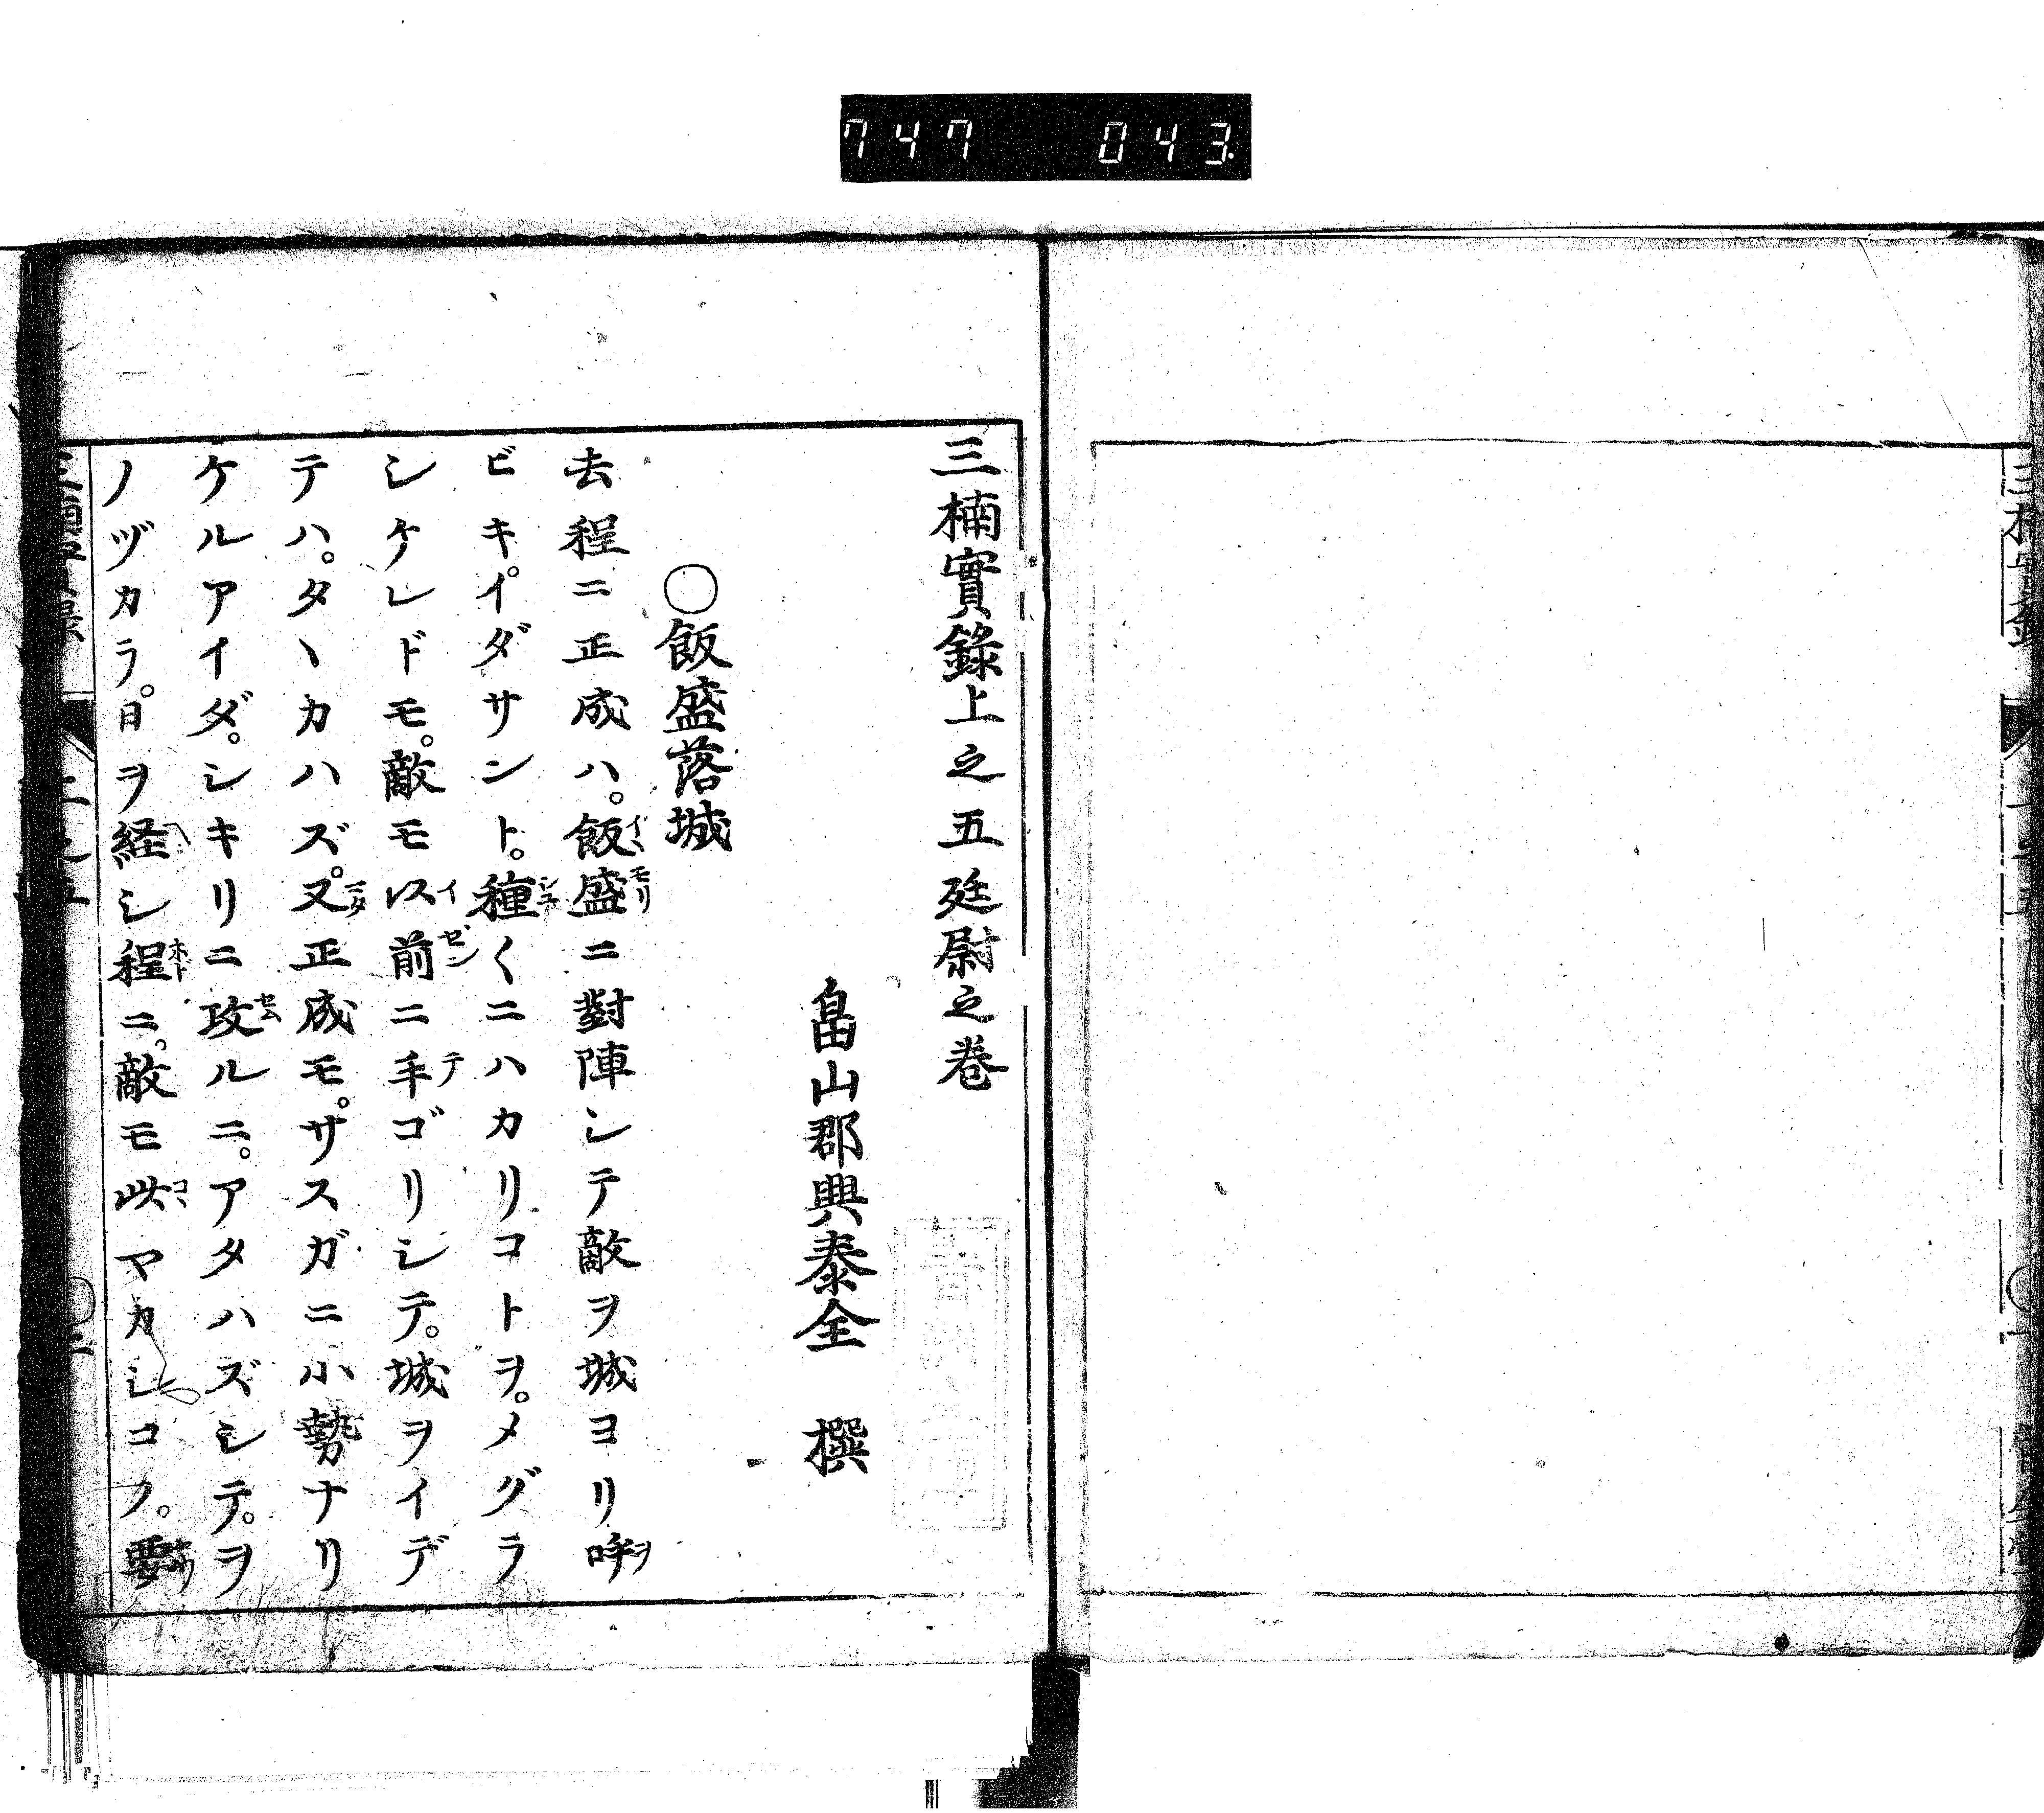 747 043
三楠實錄上之五廷尉之巻
畠山郡興泰全 撰
○飯盛落城
去程ニ正成ハ。飯盛ニ對陣シテ敵ヲ城ヨリ呼
ビキ。イダサント。種〱ニハカリコトヲ。メグラ
シケレドモ。敵モ以前ニ手ゴリシテ。城ヲイデ
テハ。タヽカハズ。又正成モ。サスガニ小勢ナリ
ケルアイダ。シキリニ攻ルニ。アタハズシテ。ヲ
ノヅカラ。日ヲ経シ程ニ。敵モ㳄マカシコノ。要